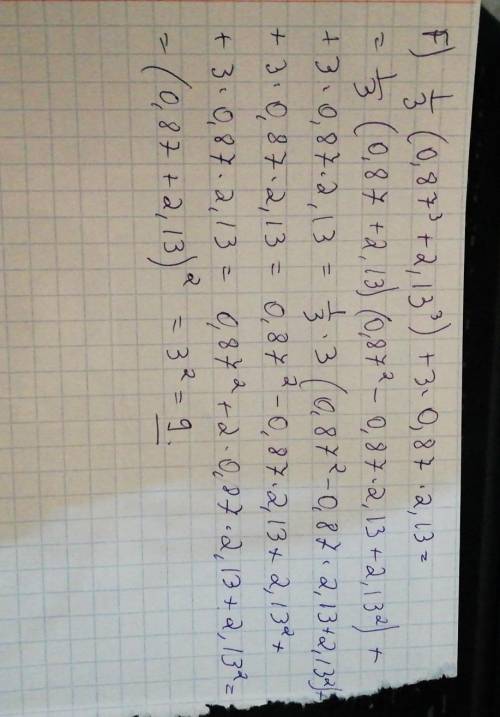 F) 1/3 (0,87³ + 2,13³) + 3·0,87·2,13 =
= 1/3 (0,87 + 2,13) (0,87² - 0,87·2,13 + 2,13²) +
+ 3·0,87·2,13 = 1/3 · 3 (0,87² - 0,87·2,13 + 2,13²) +
+ 3·0,87·2,13 = 0,87² - 0,87·2,13 + 2,13² +
+ 3·0,87·2,13 = 0,87² + 2·0,87·2,13 + 2,13² =
= (0,87 + 2,13)² = 3² = 9.